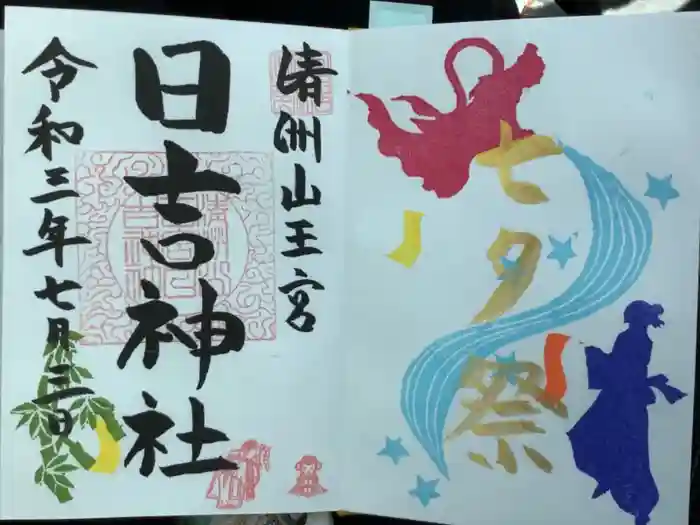 七夕祭
清洲山王宮
日吉神社
令和三年七月三日